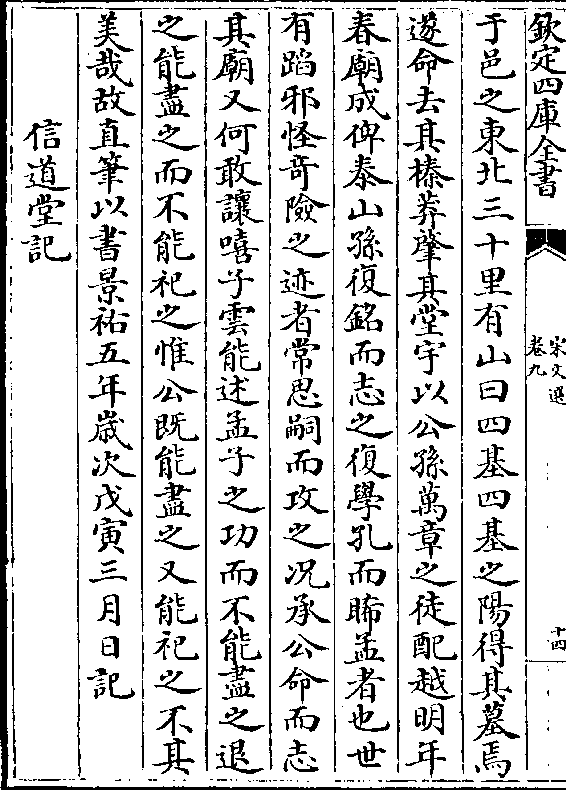 欽定四庫全書
宋文選
卷九
十四
于邑之東北三十里有山曰四基四基之陽得其墓焉
遂命去其榛莽肇其堂宇以公孫萬章之徒配越明年
春廟成俾泰山孫復銘而志之復學孔而睎孟者也世
有蹈邪怪竒險之迹者常思嗣而攻之况承公命而志
其廟又何敢讓嘻子雲能述孟子之功而不能盡之退
之能盡之而不能祀之惟公既能盡之又能祀之不其
美哉故直筆以書景祐五年歲次戊寅三月日記
信道堂記